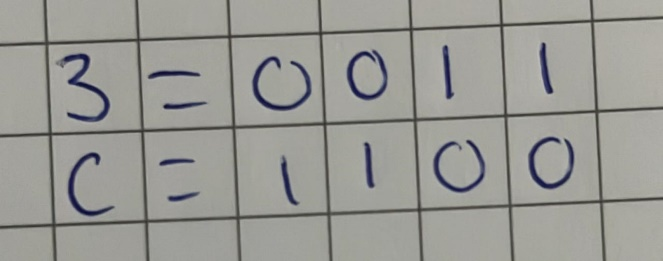 3 = 0 0 1 1
C = 1 1 0 0